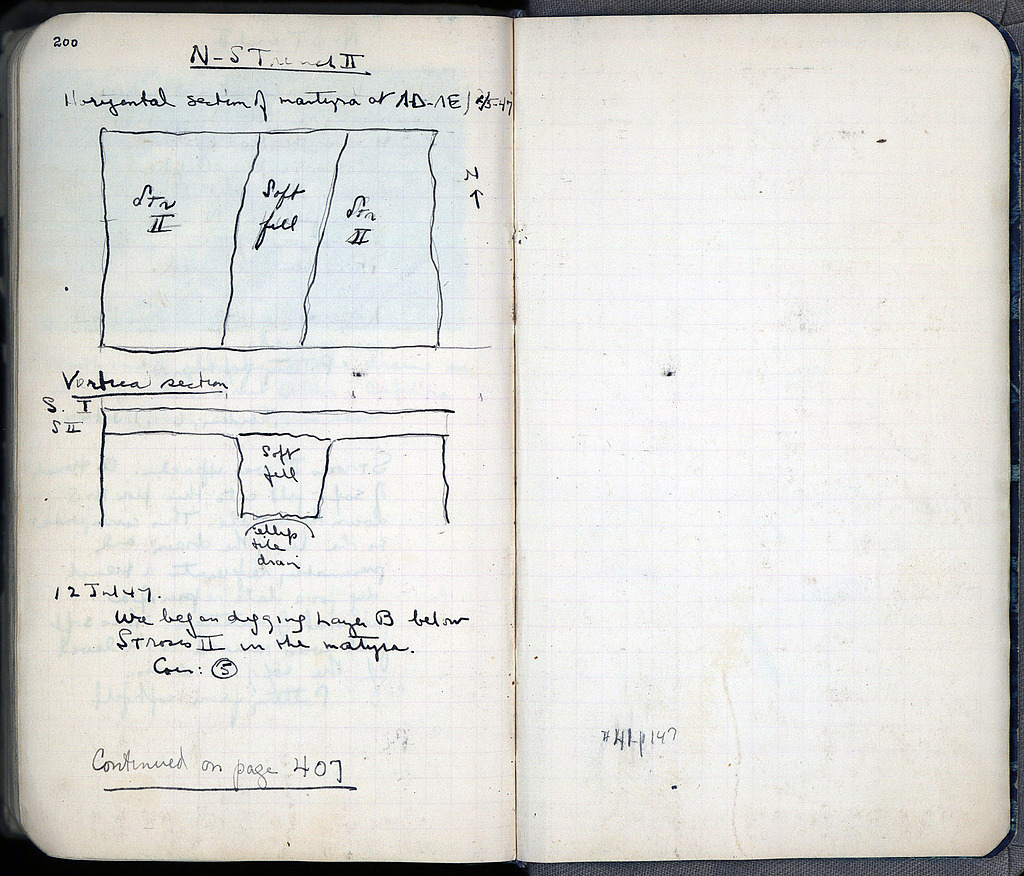 200
N-S Trench II
Horizontal section of martyra at AD-AE/ 4/5-47
N
Str II
Soft fill
Str II
Vertical section
S. I
S II
Soft fill
ellip
tile
drain
12 Jul 47.
We began digging Layer B below
Strosis II in the martyra.
Coin: 5
Continued on page 407